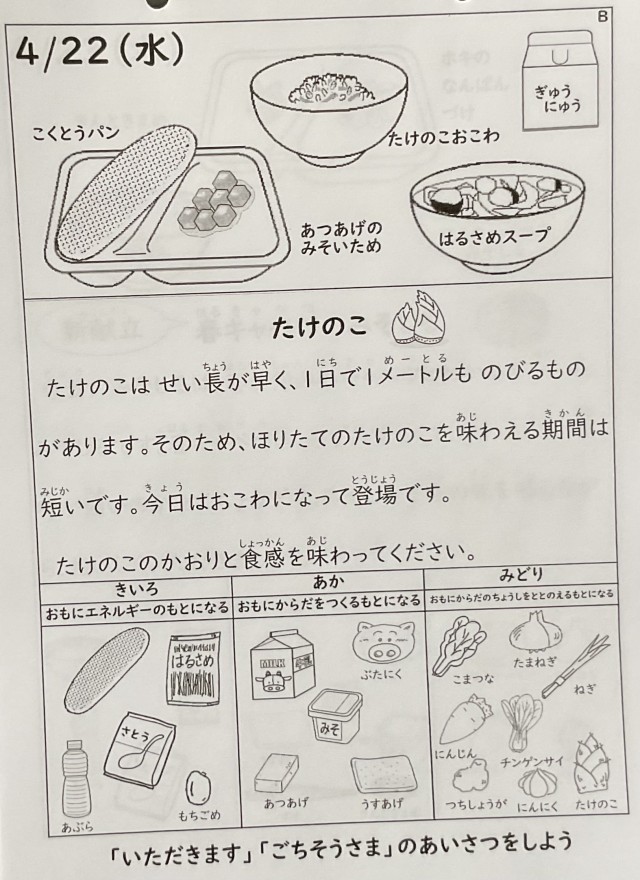 B
4/22(水)
こくとうパン
たけのこおこわ
ぎゅう
にゅう
あつあげの
みそいため
はるさめスープ
たけのこ
たけのこは せい長が早く、1日で1メートルも のびるもの
があります。そのため、ほりたてのたけのこを味わえる期間は
短いです。今日はおこわになって登場です。
たけのこのかおりと食感を味わってください。
きいろ
おもにエネルギーのもとになる
はるさめ
さとう
あぶら
もちごめ
あか
おもにからだをつくるもとになる
MILK
ぶたにく
みそ
あつあげ
うすあげ
みどり
おもにからだのちょうしをととのえるもとになる
こまつな
たまねぎ
ねぎ
にんじん
チンゲンサイ
つちしょうが
にんにく
たけのこ
「いただきます」「ごちそうさま」のあいさつをしよう